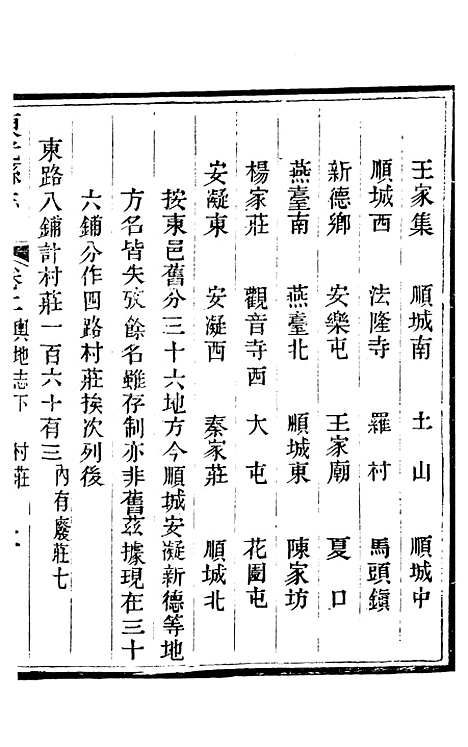 王家集　順城南　土山　順城中
順城西　法隆寺　羅村　馬頭鎮
新德鄉　安樂屯　王家廟　夏口
燕臺南　燕臺北　順城東　陳家坊
楊家莊　觀音寺西　大屯　花園屯
安凝東　安凝西　秦家莊　順城北
按東邑舊分三十六地方今順城安凝新德等地
方名皆失攷餘名雖存制亦非舊茲據現在三十
六鋪分作四路村莊挨次列後
東路八鋪計村莊一百六十有三內有廢莊七
卷二輿地志下　村莊